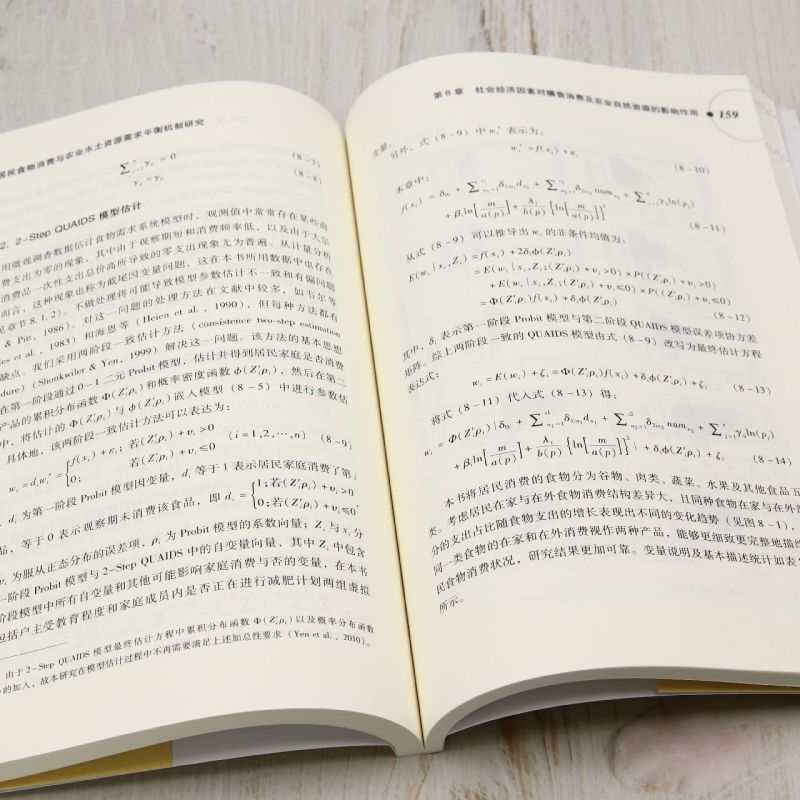 居民食物消费与农业水土资源需求平衡机制研究
∑ⁿᵢ₌₁γᵢⱼ = 0 (8-7)
γᵢⱼ = γⱼᵢ (8-8)
2. 2-Step QUAIDS 模型估计
用微观调查数据估计食物需求系统模型时，观测值中常常存在某些商
费支出为零的现象，其中由于观察期短和消费频率低，以及由于大宗
消费品一次性支出总价高所导致的零支出现象尤为普遍。从计量分析
而言，这种现象也称为截尾因变量问题，这在本书所用数据中也存在
见章节 8.1.2）。不做处理将可能导致模型参数估计不一致和有偏问题
& Pitt, 1986）。对这一问题的处理方法在文献中较多，如韦尔等
es et al., 1983）和海恩等（Heien et al., 1990），但每种方法都有
缺点。我们采用两阶段一致估计方法（consistence two-step estimation
dure）（Shonkwiler & Yen, 1999）解决这一问题。该方法的基本思想
在第一阶段通过 0-1 二元 Probit 模型，估计并得到居民家庭是否消费
产品的累积分布函数 Φ(Z'ᵢρᵢ) 和概率密度函数 φ(Z'ᵢρᵢ)，然后在第二
中，将估计的 Φ(Z'ᵢρᵢ) 与 φ(Z'ᵢρᵢ) 嵌入模型（8-5）中进行参数估
具体地，该两阶段一致估计方法可以表达为：
wᵢ = dᵢwᵢ* = {f(xᵢ) + εᵢ; 若(Z'ᵢρᵢ) + υᵢ > 0
0; 若(Z'ᵢρᵢ) + υᵢ ≤ 0 (i = 1,2,⋯,n) (8-9)
dᵢ 为第一阶段 Probit 模型因变量，dᵢ 等于 1 表示居民家庭消费了第 i
品，等于 0 表示观察期未消费该食品，即 dᵢ = {1;若(Z'ᵢρᵢ) + υᵢ > 0
0;若(Z'ᵢρᵢ) + υᵢ ≤ 0
υᵢ 为服从正态分布的误差项，ρᵢ 为 Probit 模型的系数向量；Zᵢ 与 xᵢ 分
一阶段 Probit 模型与 2-Step QUAIDS 中的自变量向量，其中 Zᵢ 中包含
阶段模型中所有自变量和其他可能影响家庭消费与否的变量，在本书
包括户主受教育程度和家庭成员内是否正在进行减肥计划两组虚拟
由于 2-Step QUAIDS 模型最终估计方程中累积分布函数 Φ(Z'ᵢρᵢ) 以及概率分布函数
的加入，故本研究在模型估计过程中不再需要满足上述加总性要求（Yen et al., 2010）。
第 8 章 社会经济因素对膳食消费及农业自然资源的影响作用 ● 159
变量。
另外，式（8-9）中 wᵢ* 表示为：
wᵢ* = f(xᵢ) + εᵢ (8-10)
本章中：
f(xᵢ) = δ₀ᵢ + ∑ δ₁ₙ₁ᵢdₙ₁ + ∑ δ₂ₙ₂ᵢnumₙ₂ + ∑ γᵢⱼln(pⱼ)
+ βᵢln[m/a(p)] + λᵢ/b(p){ln[m/a(p)]}² (8-11)
从式（8-9）可以推导出 wᵢ 的非条件均值为：
E(wᵢ | xᵢ,Zᵢ) = f(xᵢ) + 2δᵢφ(Z'ᵢρᵢ)
= E(wᵢ | xᵢ,Zᵢ;(Z'ᵢρᵢ) + υᵢ > 0) × P((Z'ᵢρᵢ) + υᵢ > 0)
+ E(wᵢ | xᵢ,Zᵢ;(Z'ᵢρᵢ) + υᵢ ≤ 0) × P((Z'ᵢρᵢ) + υᵢ ≤ 0)
= Φ(Z'ᵢρᵢ)f(xᵢ) + δᵢφ(Z'ᵢρᵢ) (8-12)
其中，δᵢ 表示第一阶段 Probit 模型与第二阶段 QUAIDS 模型误差项协方差
矩阵。综上两阶段一致的 QUAIDS 模型由式（8-9）改写为最终估计方程
表达式：
wᵢ = E(wᵢ) + ζᵢ = Φ(Z'ᵢρᵢ)f(xᵢ) + δᵢφ(Z'ᵢρᵢ) + ζᵢ (8-13)
将式（8-11）代入式（8-13）得：
wᵢ = Φ(Z'ᵢρᵢ){δ₀ᵢ + ∑ δ₁ₙ₁ᵢdₙ₁ + ∑ δ₂ₙ₂ᵢnumₙ₂ + ∑ γᵢⱼln(pⱼ)
+ βᵢln[m/a(p)] + λᵢ/b(p){ln[m/a(p)]}²} + δᵢφ(Z'ᵢρᵢ) + ζᵢ (8-14)
本书将居民消费的食物分为谷物、肉类、蔬菜、水果及其他食品五
类。考虑居民在家与在外食物消费结构差异大，且同种食物在家与在外部
分的支出占比随食物支出的增长表现出不同的变化趋势（见图 8-1），
同一类食物的在家和在外消费视作两种产品，能够更细致更完整地描绘
民食物消费状况，研究结果更加可靠。变量说明及基本描述统计如表
所示。